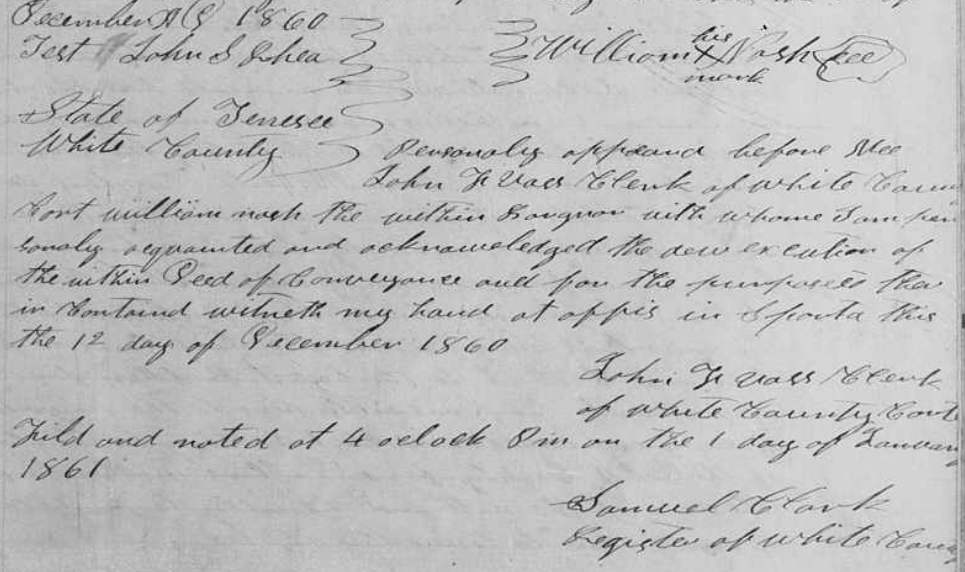 December AD 1860
Test John S Rhea William his X mark Nash seal
State of Tenesee
White County Personaly appeand before Mee
John F Vass Clerk of white Coun
Cort william nash the within Bargnor with whome I am per
sonaly aqquainted and acknaweledged the dew excution of
the within Deed of Conveyance and for the purposes ther
in Containd witneth my hand at offis in Sparta this
the 12 day of December 1860
John F Vass Clerk
of white County Cort
Fild and noted at 4 oclock Pm on the 1 day of January
1861
Samuel Clark
Register of white Coun